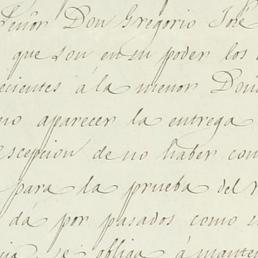 Señor Don Gregorio José
que son en su poder los
ecientes á la menor Doña
no aparecer la entrega
escepcion de no haber con
para la prueba del r
dá por pasados como s
se obliga á mante